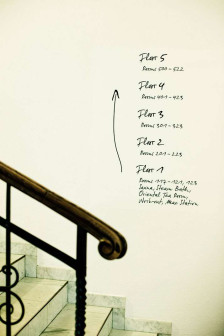 Floor 5
Rooms 501 - 522
Floor 4
Rooms 401 - 423
Floor 3
Rooms 301 - 323
Floor 2
Rooms 201 - 223
Floor 1
Rooms 117 - 121, 123
Sauna, Steam Bath,
Oriental Tea Room,
Workout, Mac Station